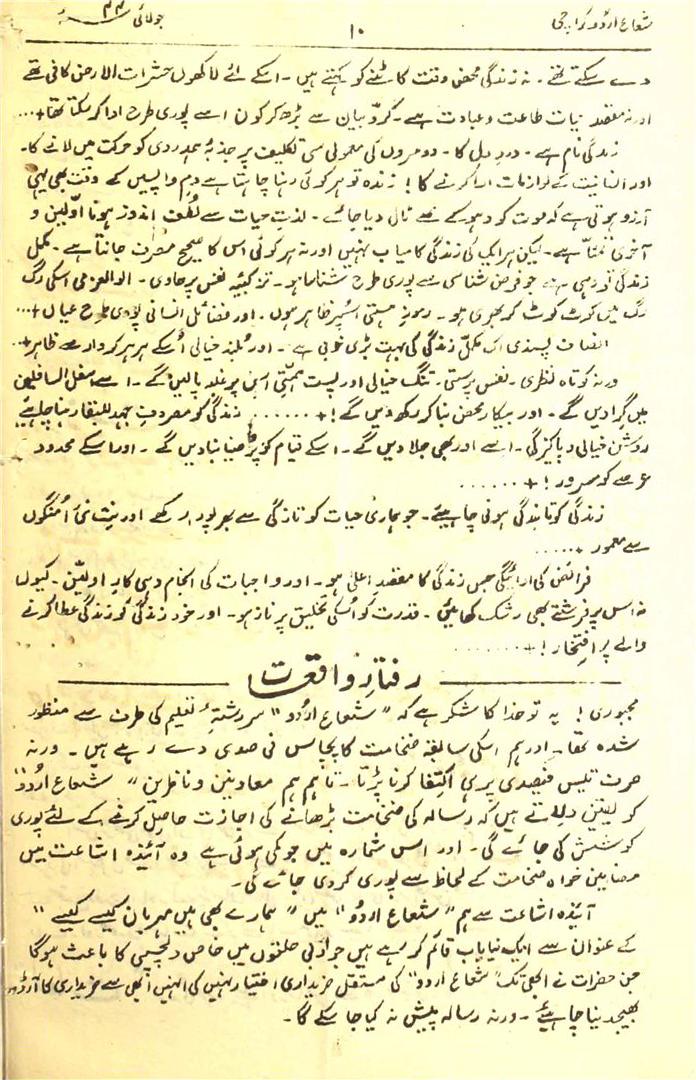 شعاع اردو کراچی
۱۰
جولائی ۴۴ء
دے سکتے تھے ۔ نہ زندگی محض وقت کاٹنے کو کہتے ہیں ۔ اسکے لئے لاکھوں حشرات الارض کافی تھے
اور نہ مقصدِ حیات طاعت و عبادت ہے ۔ کرّ و بیان سے بڑھ کر کون اسے پوری طرح ادا کر سکتا تھا + ...
زندگی نام ہے ۔ دردِ دل کا ۔ دوسروں کی معمولی سی تکلیف پر جذبۂ ہمدردی کو حرکت میں لانے کا ۔
اور انسانیت کے لوازمات ادا کرنے کا ! زندہ تو ہر کوئی رہنا چاہتا ہے دمِ واپسیں کے وقت بھی یہی
آرزو ہوتی ہے کہ موت کو دھوکے سے ٹال دیا جائے ۔ لذتِ حیات سے لُطف اندوز ہونا اوّلین و
آخری تمنّا ہے ۔ لیکن ہر ایک کی زندگی کامیاب نہیں اور نہ ہر کوئی اس کا صحیح مصرف جانتا ہے ۔ مکمل
زندگی تو وہی ہے جو فرض شناسی سے پوری طرح شناسا ہو ۔ تزکیۂ نفس پر حاوی ۔ الوالعزمی اسکی رگ
رگ میں کوٹ کوٹ کر بھری ہو ۔ رموزِ ہستی اسپر ظاہر ہوں ۔ اور فضائل انسانی پوری طرح عیاں + ...
انصاف پسندی اک مکمل زندگی کی بہت بڑی خوبی ہے ۔ اور بلند خیالی اُسکے ہر ہر کردار سے ظاہر + ...
ورنہ کوتاہ نظری ۔ نفس پرستی ۔ تنگ خیالی اور پست ہمتی اس پر غلبہ پالیں گے ۔ اسے اسفل السافلین
میں گرا دیں گے ۔ اور بیکارِ محض بنا کر رکھ دیں گے ! + ...... زندگی کو مصروفِ جہد للبقا رہنا چاہئیے
روشن خیالی و پاکیزگی ۔ اسے اور بھی جلا دیں گے ۔ اسکے قیام کو پُر ضیا بنا دیں گے ۔ اور اسکے محدود
عرصے کو مسرور ! + ......
زندگی کو تابندگی ہونی چاہیئے ۔ جو ہماری حیات کو تازگی سے بھرپور رکھے اور نِت نئی اُمنگوں
سے معمور + .....
فرائض کی ادائیگی جس زندگی کا مقصدِ اعلیٰ ہو ۔ اور واجبات کی انجام دہی کارِ اولیّں ۔ کیوں
نہ اس پر فرشتے بھی رشک کھائیں ۔ قدرت کو اُسکی تخلیق پر ناز ہو ۔ اور خود زندگی کو زندگی عطا کرنے
والے پر افتخار ! + .......
رفتارِ واقعات
مجبوری ! یہ تو خدا کا شکر ہے کہ “شعاع اردُو” سررشتہء تعلیم کی طرف سے منظور
شدہ تھا ۔ اور ہم اسکی سابقہ ضخامت کا پچاس فی صدی دے رہے ہیں ۔ ورنہ
صرف تیس فیصدی پر ہی اکتفا کرنا پڑتا ۔ تاہم ہم معاونین و ناظرین “شعاع اردُو”
کو یقین دلاتے ہیں کہ رسالہ کی ضخامت بڑھانے کی اجازت حاصل کرنے کے لئے پوری
کوشش کی جائے گی ۔ اور اس شمارہ میں جو کمی ہوئی ہے وہ آئیندہ اشاعت میں
مضامین خواہ ضخامت کے لحاظ سے پوری کر دی جائے گی ۔
آئیندہ اشاعت سے ہم “شعاع اردُو” میں “ہمارے بھی ہیں مہرباں کیسے کیسے”
کے عنوان سے ایک نیا باب قائم کر رہے ہیں جو ادبی حلقوں میں خاص دلچسپی کا باعث ہوگا
جن حضرات نے ابھی تک “شعاع اردو” کی مستقل خریداری اختیار نہیں کی انہیں ابھی سے خریداری کا آرڈر
بھیجدینا چاہیئے ۔ ورنہ رسالہ پیش نہ کیا جا سکے گا ۔